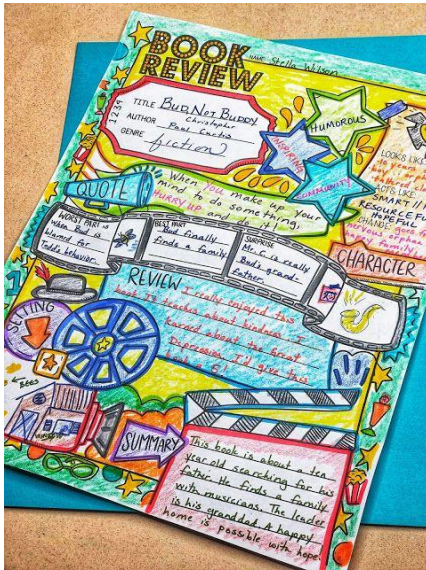 BOOK
REVIEW
NAME Stella Wilson
TITLE Bud, Not Buddy
AUTHOR Christopher
Paul Curtis
GENRE fiction
INSPIRING
HUMOROUS
COMMUNITY
QUOTE
When you make up your
mind to do something,
HURRY UP and do it!
LOOKS LIKE
ACTS LIKE
SMART
RESOURCEFUL
HOPEFUL
CHANGE:
goes from
nervous orphan
to family
CHARACTER
WORST PART is
when Bud is
blamed for
Todd's behavior.
BEST PART
Bud finally
finds a family
SURPRISE
Mr. C. is really
Bud's grand-
father.
REVIEW
I really enjoyed this
book. It's about kindness. I
learned about the Great
Depression. I'd give this
book a 5!
SETTING
BEES
SUMMARY
This book is about a ten
year old searching for his
father. He finds a family
with musicians. The leader
is his granddad. A happy
home is possible with hope.